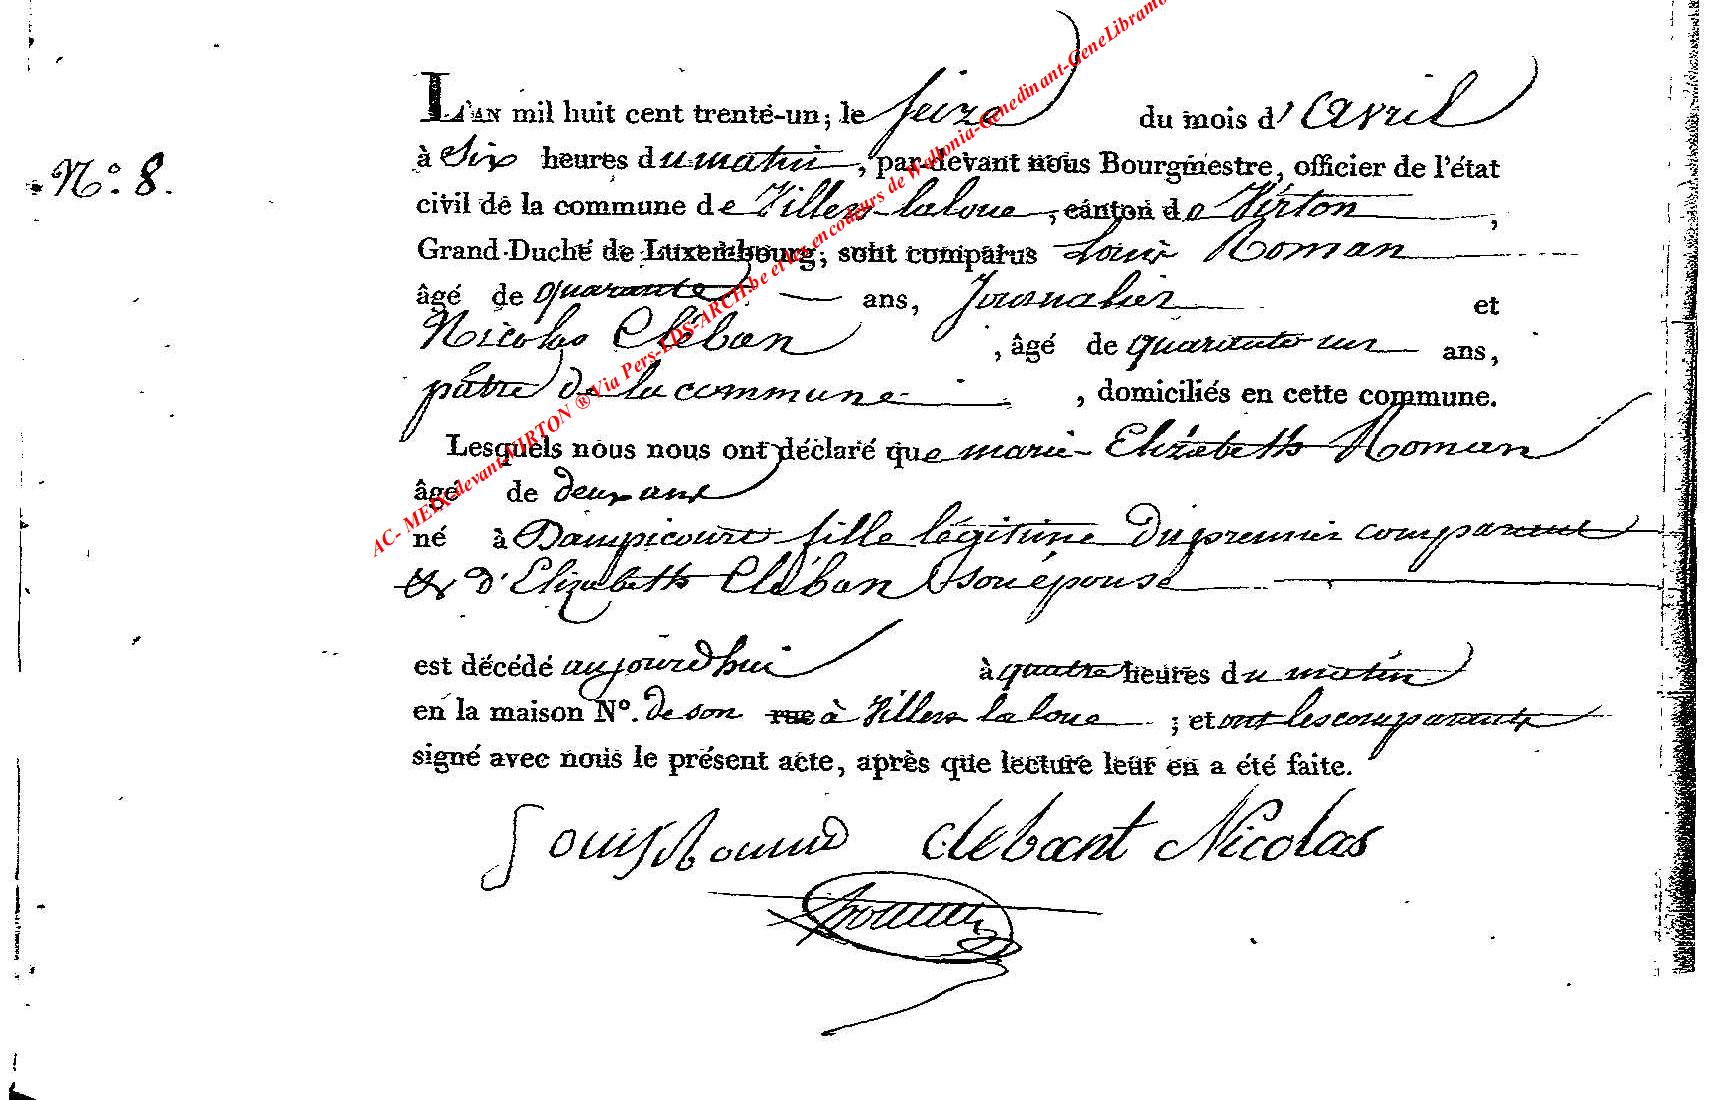 N.º 8.
L'AN mil huit cent trente-un; le seize du mois d'avril
à Six heures du matin, par devant nous Bourgmestre, officier de l'état
civil de la commune de Villers-laloue, canton de Virton,
Grand-Duché de Luxembourg, sont comparus Louis Roman
âgé de quarante ans, Journalier et
Nicolas Cléban, âgé de quarante un ans,
pâtre de la commune, domiciliés en cette commune.
Lesquels nous nous ont déclaré que marie-Elizabeth Roman
âgé de deux ans
né à Dampicourt fille légitime du premier comparant
& d'Elizabeth Cléban son épouse
est décédé aujourd'hui à quatre heures du matin
en la maison Nº. de son rue à Villers laloue; et ont les comparants
signé avec nous le présent acte, après que lecture leur en a été faite.
Clebant Nicolas
AC- MEIX-devant-VIRTON ® Via Pers-LDS-ARCH.be et les encodeurs de Wallonia-Genedinant-GeneLibramo